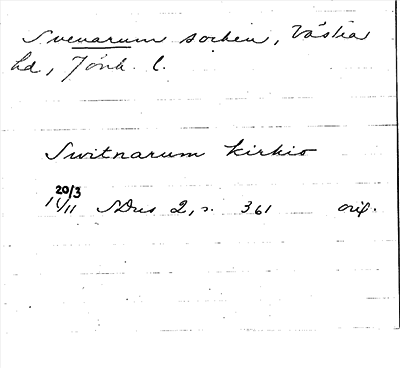 Svenarum socken, Västra
hd, Jönk. l.
Switnarum kirkio
20/3
11/11 SDns 2, s. 361 orig.